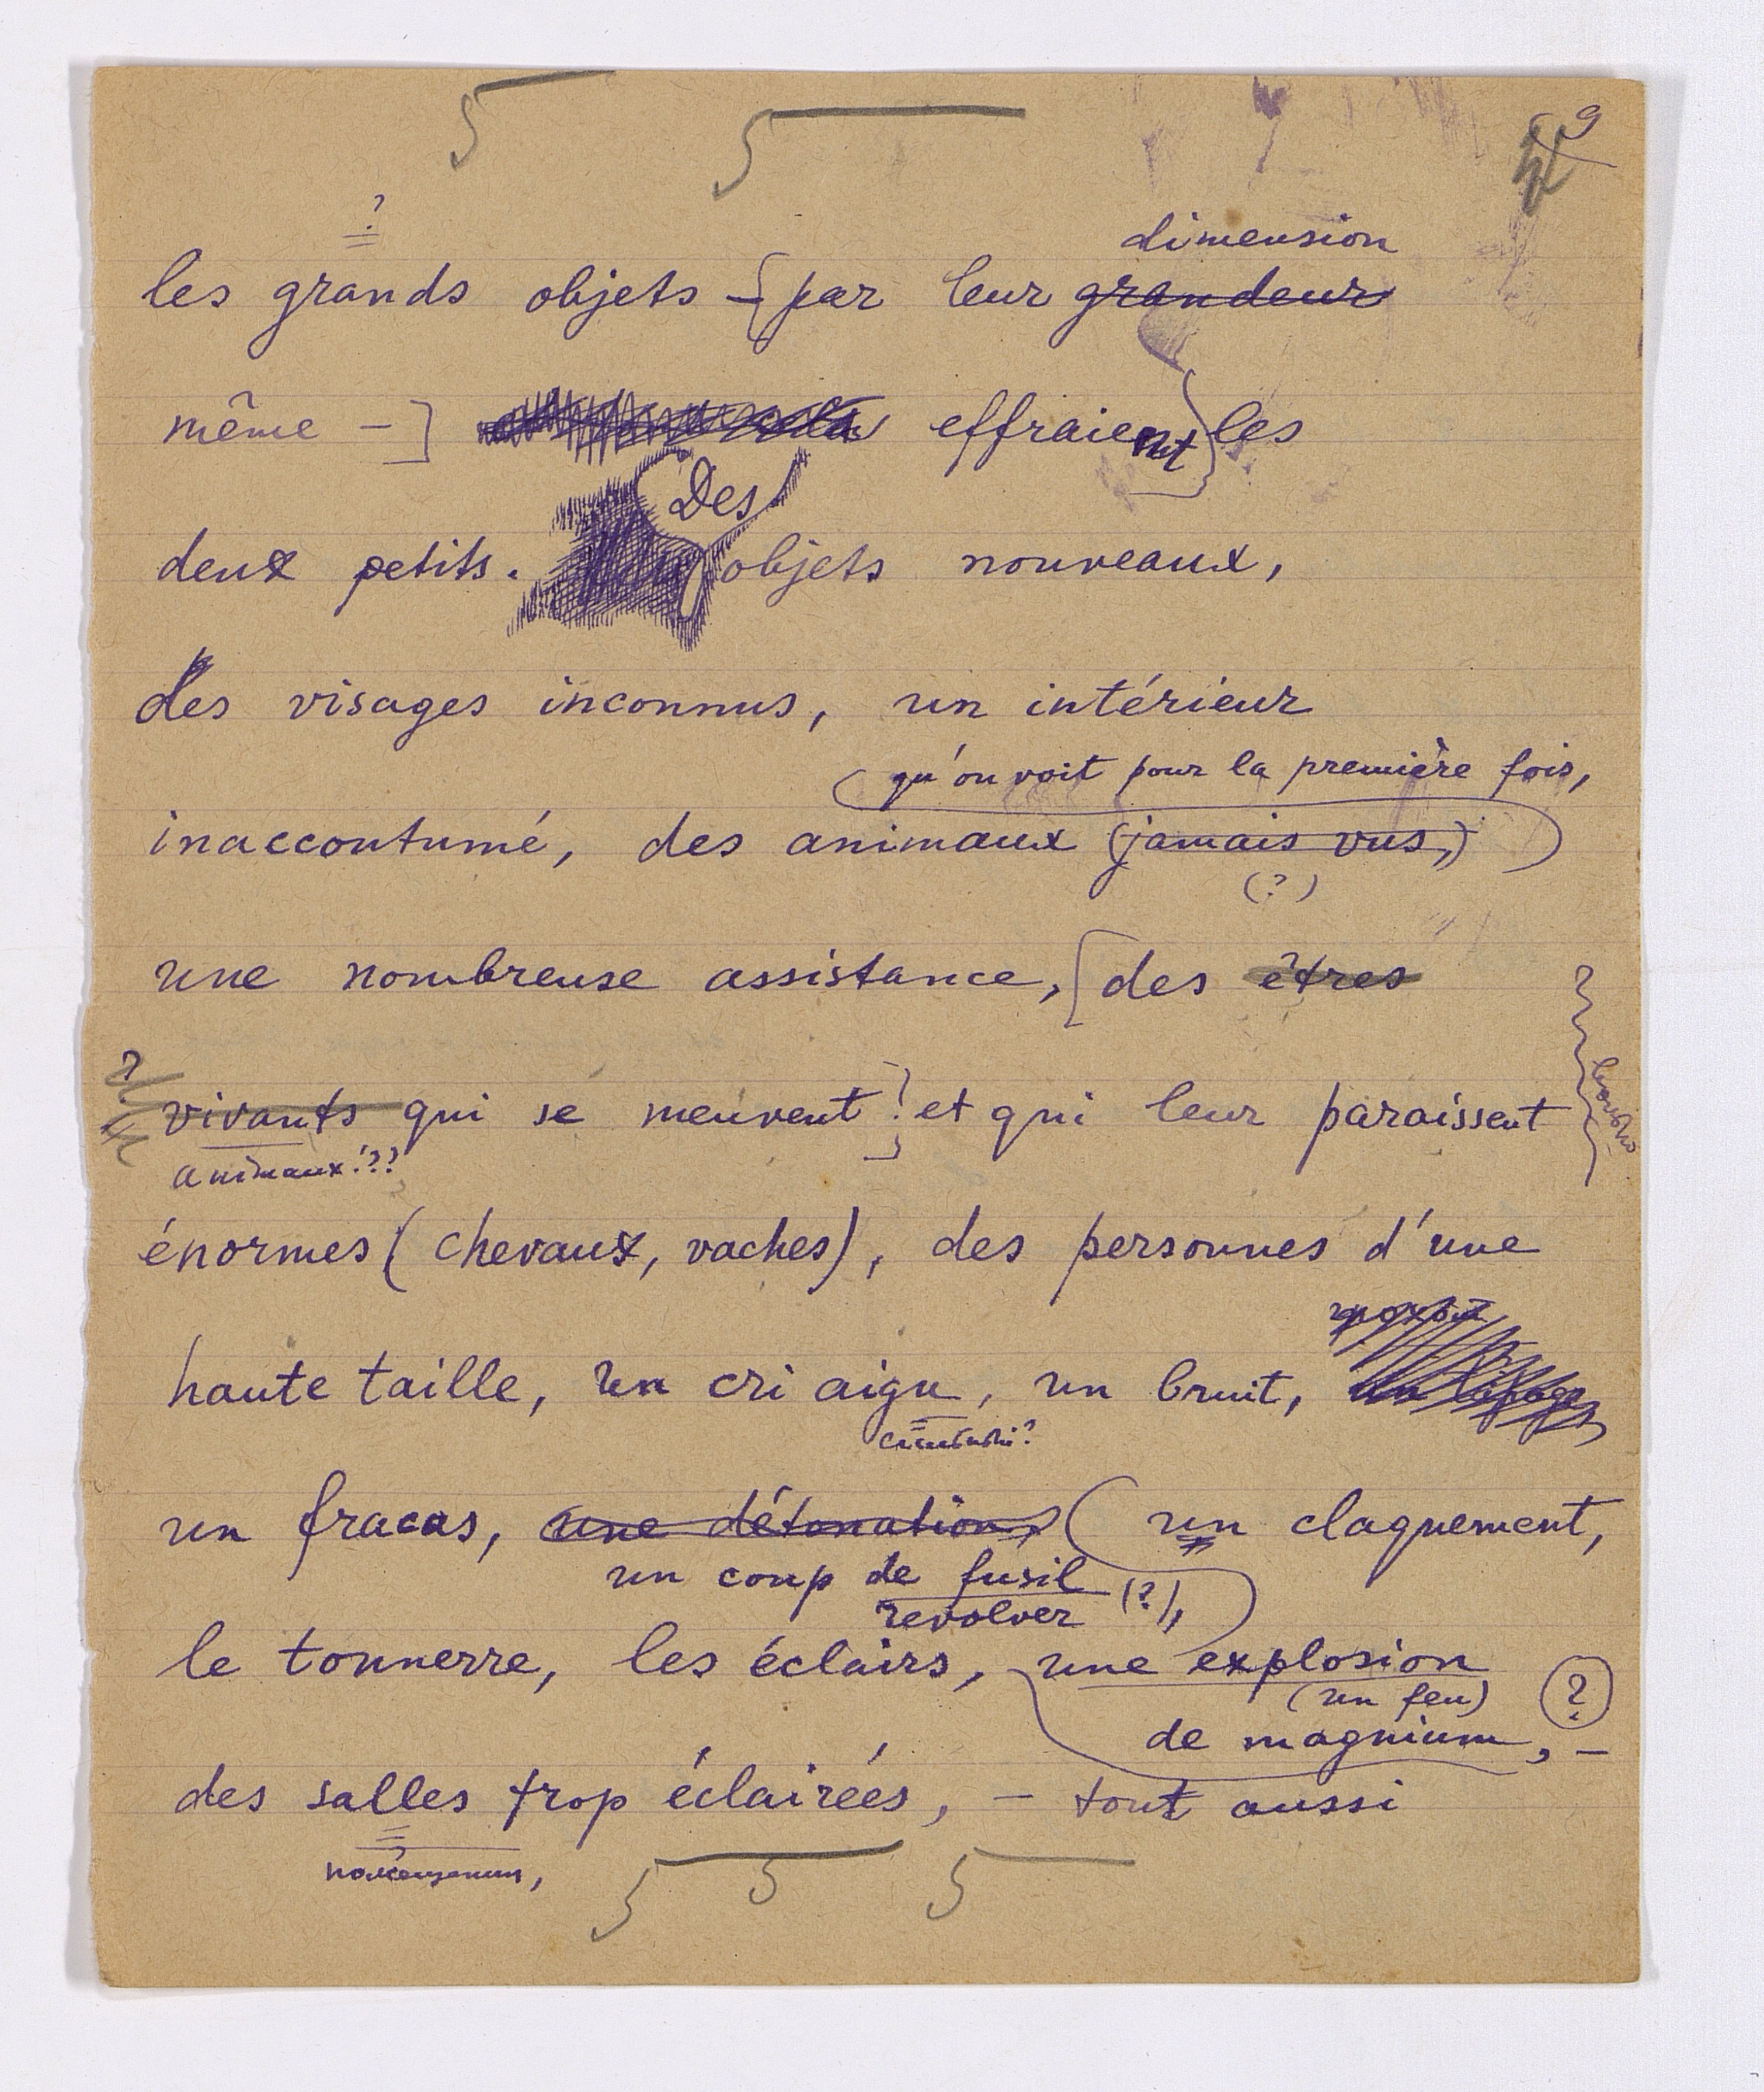 5 5 9
?
dimension
les grands objets – [par leur grandeur
même –] effraient} les
Des
deux petits. objets nouveaux,
des visages inconnus, un intérieur
qu'on voit pour la première fois,
inaccoutumé, des animaux (jamais vus,)
(?)
une nombreuse assistance, [des êtres
vivants qui se meuvent!] et qui leur paraissent
animaux!??
énormes (chevaux, vaches), des personnes d'une
haute taille, un cri aigu, un bruit,
un fracas, une détonation, (un claquement,
un coup de fusil
revolver (?),
le tonnerre, les éclairs, une explosion
(un feu) ?
de magnium, –
des salles trop éclairées, – tout aussi
5 5 5